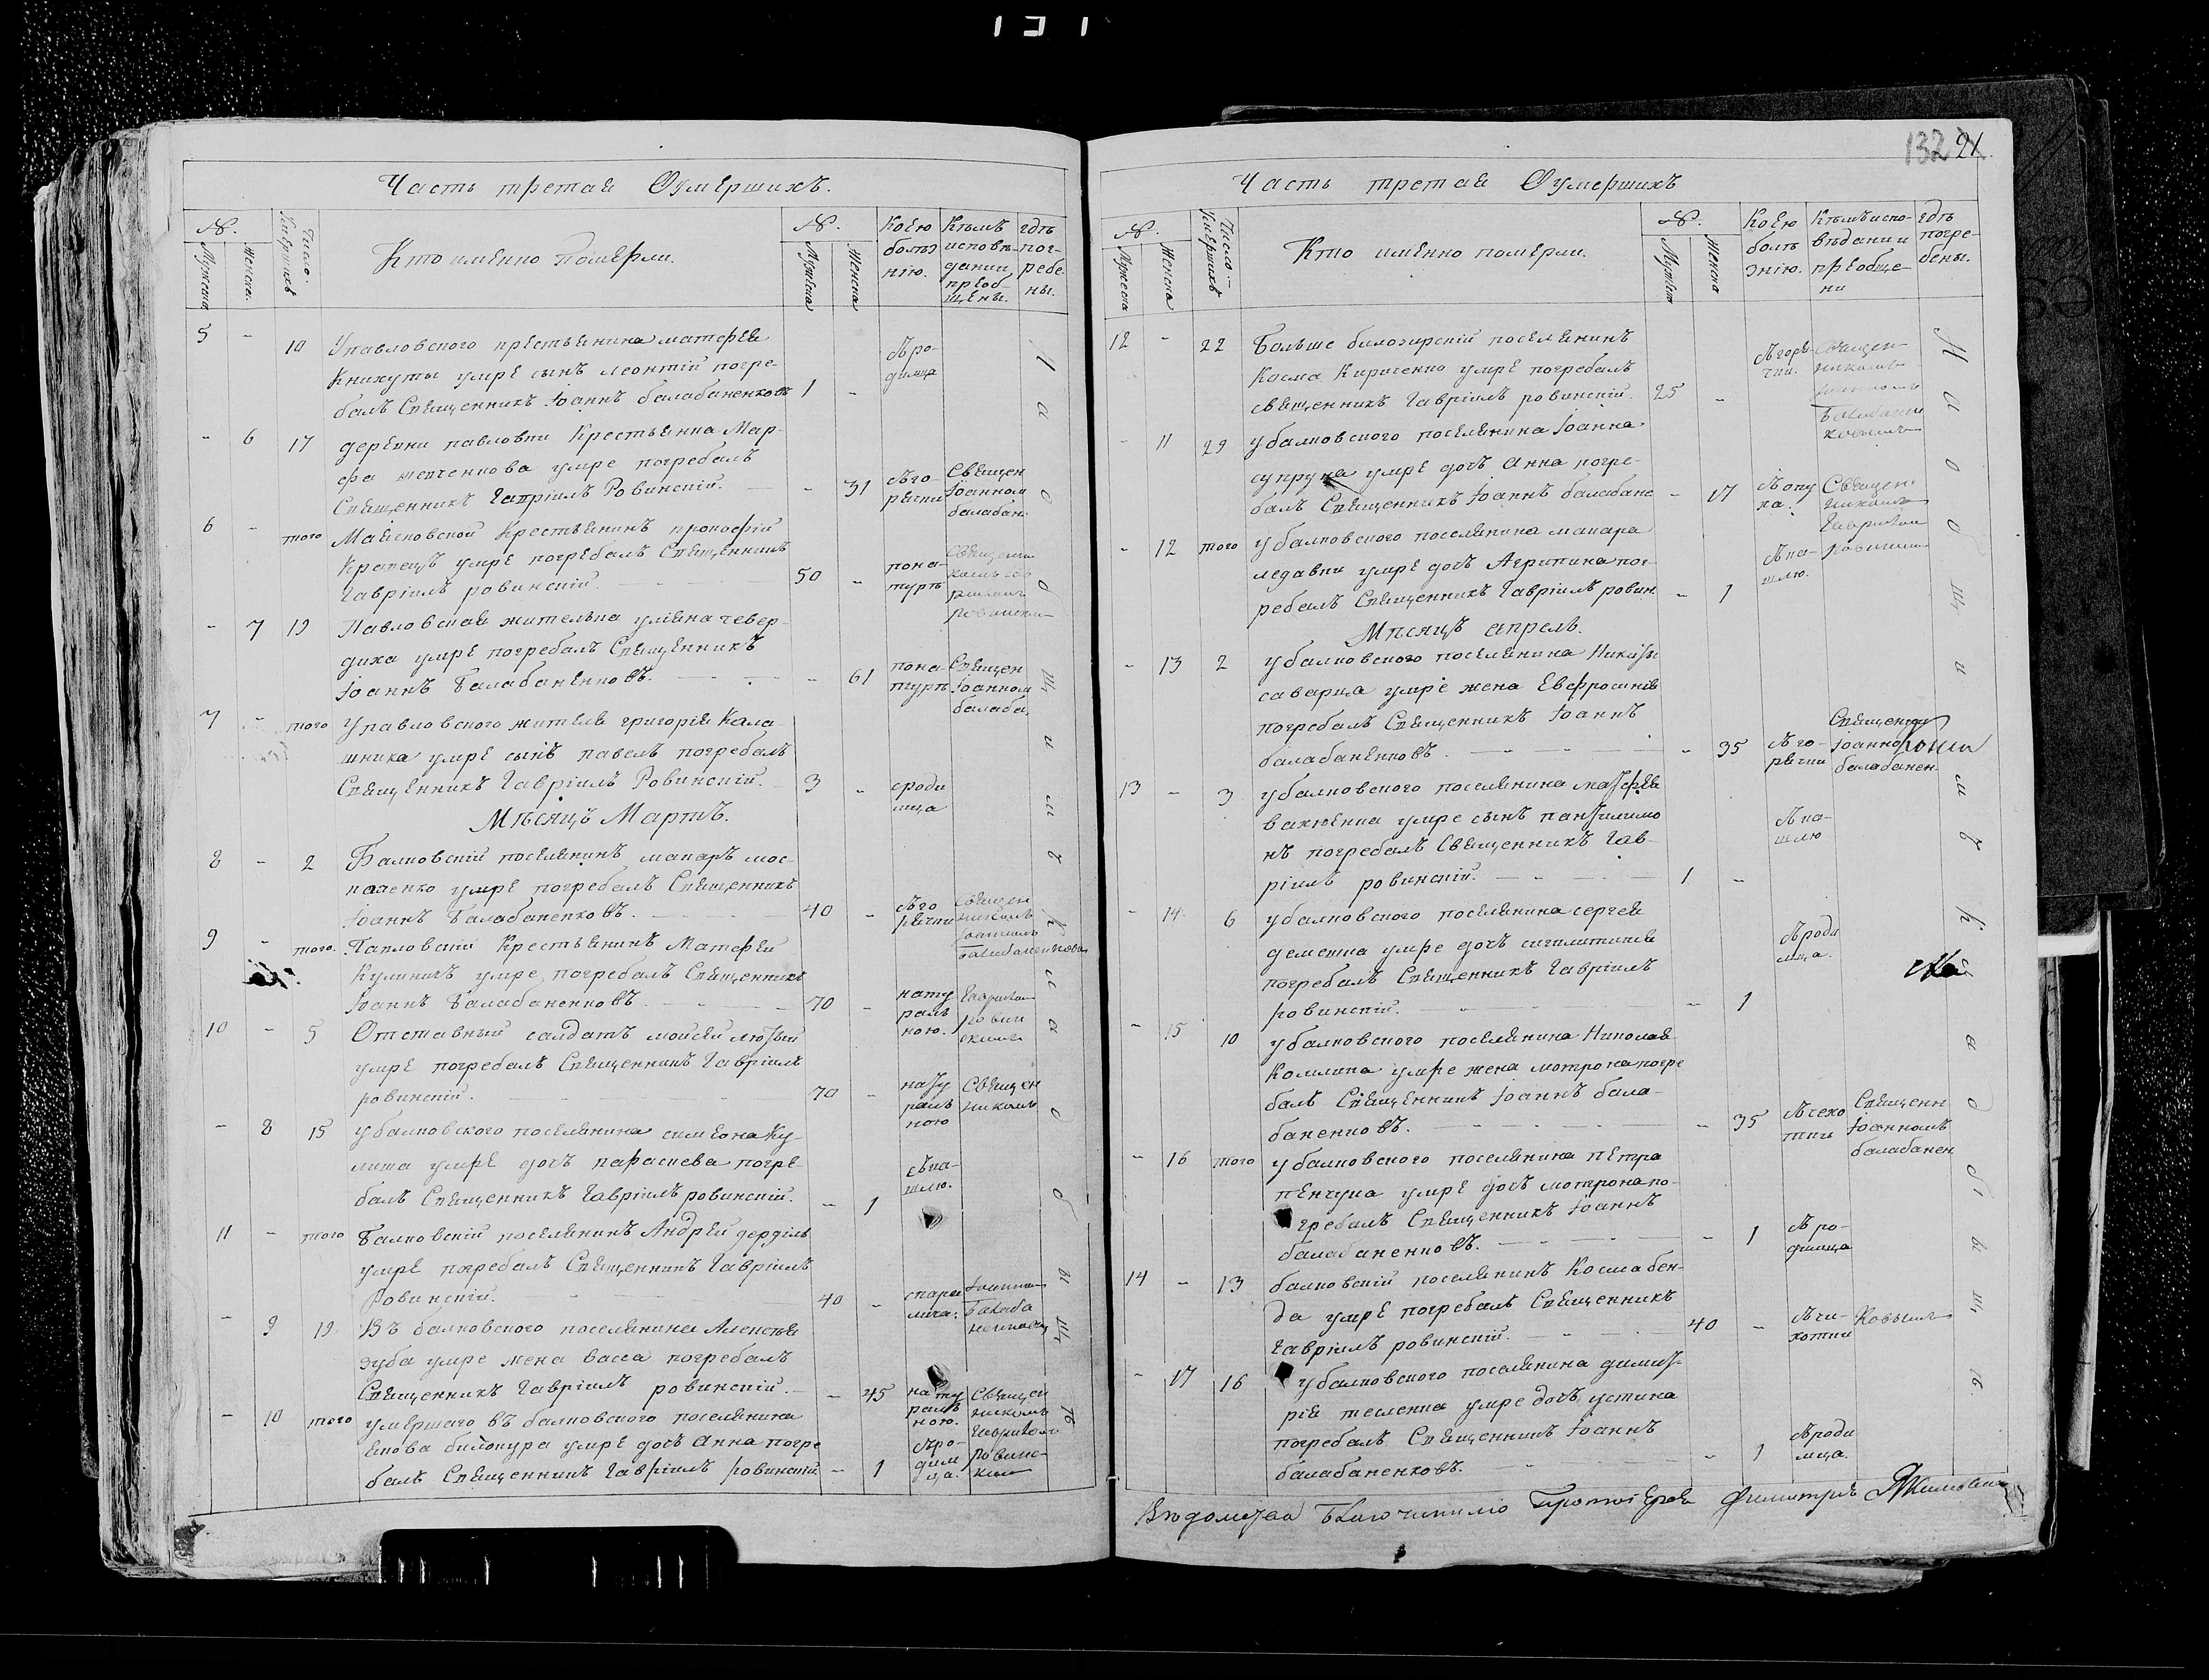 131
132 21
Часть третая Оумершихъ.
№.
Мужеска
Женска.
Число Умершихъ
Кто именно Померли.
№.
Мужеска
Женска
Коею болѣзнію.
Кѣмъ исповѣданы и пріобщены.
гдѣ погребены.
5 - 10 У павловскаго крестьянина матѳея
Кникуты умре сынъ леонтій погре-
балъ Священникъ Іоаннъ балабаненковъ 1 -
Ѣ ро-
димца
- 6 17 деревни павловки Крестьянка Мар-
фа умре погребалъ
Священникъ Гавріилъ Ровинскій. - 31
Ѣ го-
рячки
Священ
Іоанном
балабан.
6 - того Маиековской Крестьянинъ прокофій
Кравецъ умре погребалъ Священникъ
Гавріилъ ровинскій. 50 -
пона-
туръ
- 7 19 Павловская жителька уліяна чевер-
диха умре погребалъ Священникъ
Іоаннъ Балабаненковъ. - 61
пона-
туръ
Священ
Іоанном
балаба,
7 - того У павловского жителя григорія Кала
шника умре сынъ павелъ погребалъ
Священникъ Гавріилъ Ровинскій. 3 -
сроди
мца
Мѣсяцъ Мартъ.
8 - 2 Балковскій поселянинъ макаръ мос-
каленко умре погребалъ Священникъ
Іоаннъ Балабаненковъ. 40 -
Ѣ го
рячки
Священ
никомъ
Іоанномъ
Балабаненковы
9 - того. Павловскій Крестьянинъ Матѳей
Куликичъ умре погребалъ Священникъ
Іоаннъ Балабаненковъ. 70 -
нату
раль
ною.
Гавриїлом
Ровин
скимъ
10 - 5 Отставный салдатъ мойсей лютый
умре погребалъ Священникъ Гавріилъ
ровинскій. 70 -
нату
раль
ною
Священ
никомъ
- 8 15 У балковского поселянина симеона Ку-
лиша умре дочъ параскева погре-
балъ Священникъ Гавріилъ ровинскій. - 1
Ѣ ка-
шлю.
11 - того Балковскій поселянинъ Андрей
умре погребалъ Священникъ Гавріилъ
Ровинскій. 40 -
спара
лича.
Іоанном
Балаба
ненков
- 9 19 Въ балковского поселянина Алексѣя
зуба умре жена васса погребалъ
Священникъ Гавріилъ ровинскій. - 45
нату
раль
ною.
Священ
никомъ
Гавриїлом
- 10 того умершаго въ балковского поселянина
Якова билокура умре дочъ Анна погре
балъ Священникъ Гавріилъ ровинскій - 1
Ѣ ро-
дим
ца.
Ровинс-
ким
На общим кладбыщъ
Часть третая Оумершихъ
№.
Мужеска
Женска
Число Умершихъ
Кто именно померли.
№.
Мужеск
Женска
Коею болѣзнію.
Кѣмъ исповѣданы и пріобщени
гдѣ погребены.
12 - 22 Больше билозирскій поселянинъ
Косма Кириченко умре погребалъ
священникъ Гавріилъ ровинскій. 25 -
Ѣ горя-
чки.
Священ-
никомъ
Іоанномъ
Балабанен
ковымъ
- 11 29 у балковского поселянина Іоанна
супруна умре дочъ Анна погре-
балъ Священникъ Іоаннъ балабане - 17
Ѣ опу
ха.
Священ
никомъ
Гавриїлом
- 12 того у балковского поселянина макара
ледавки умре дочъ Агрипина пог-
ребалъ Священникъ Гавріилъ ровин. - 1
Ѣ ка-
шлю.
Ровински
Мѣсяцъ Апрель.
- 13 2 у балковского поселянина Никиты
саварца умре жена Евфросинія
погребалъ Священникъ Іоаннъ
балабаненковъ. - 35
Ѣ го-
рячки
Священни
Іоанно
балабанен.
13 - 3 у балковского поселянина матѳея
вакѣенка умре сынъ пантилимо
нъ погребалъ Священникъ Гав-
ріилъ ровинскій. 1 -
Ѣ ка-
шлю
- 14 6 у балковского поселянина сергея
деменка умре дочъ
погребалъ Священникъ Гавріилъ
ровинскій. - 1
Ѣ роди
мца.
- 15 10 у балковского поселянина Николая
Комлика умре жена мотрона погре
балъ Священникъ Іоаннъ бала-
баненковъ. - 35
Ѣ чехо
тки
Священн
Іоанномъ
балабанен
- 16 того у балковского поселянина петра
пенчука умре дочъ мотрона по-
гребалъ Священникъ Іоаннъ
балабаненковъ. - 1
Ѣ ро-
димца
14 - 13 балковскій поселянинъ Косма бен-
да умре погребалъ Священникъ
Гавріилъ ровинскій. 40 -
Ѣ чи-
хотки
Ковымъ
- 17 16 у балковского поселянина димит-
рія тесленка умре дочъ устина
погребалъ Священникъ Іоаннъ
балабаненковъ. - 1
Ѣ роди
мца.
На общимъ кладбыщъ
Благочинно Протоіерей Димитрій